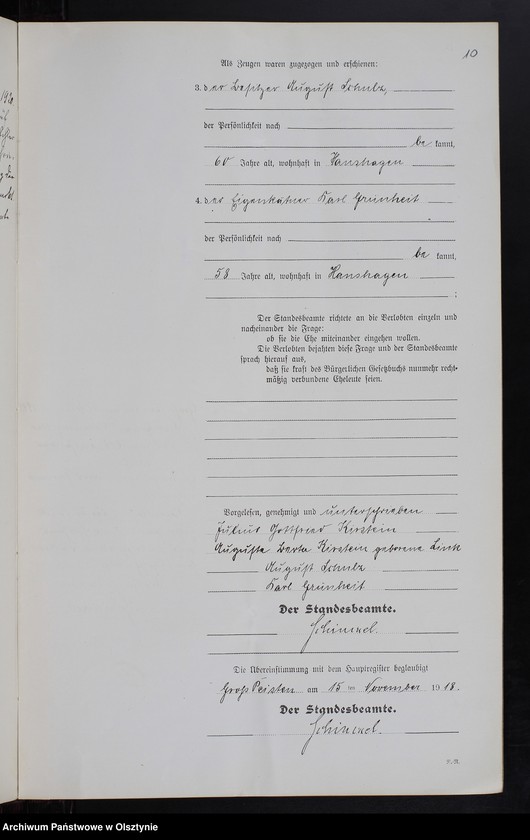 10
Als Zeugen waren zugezogen und erschienen:
3. der Besitzer August Schulz,
der Persönlichkeit nach
be kannt,
60 Jahre alt, wohnhaft in Hanshagen
4. der Eigenkätner Karl Grünheit
der Persönlichkeit nach
be kannt,
58 Jahre alt, wohnhaft in Hanshagen
;
Der Standesbeamte richtete an die Verlobten einzeln und
nacheinander die Frage:
ob sie die Ehe miteinander eingehen wollen.
Die Verlobten bejahten diese Frage und der Standesbeamte
sprach hierauf aus,
daß sie kraft des Bürgerlichen Gesetzbuchs nunmehr recht-
mäßig verbundene Eheleute seien.
Vorgelesen, genehmigt und unterschrieben
Julius Gottfried Kirstein
Auguste Berta Kirstein geborene Link
August Schulz
Karl Grünheit
Der Standesbeamte.
Schimmel.
Die Übereinstimmung mit dem Hauptregister beglaubigt
Groß Peisten am 15 ten November 1918.
Der Standesbeamte.
Schimmel.
Archiwum Państwowe w Olsztynie